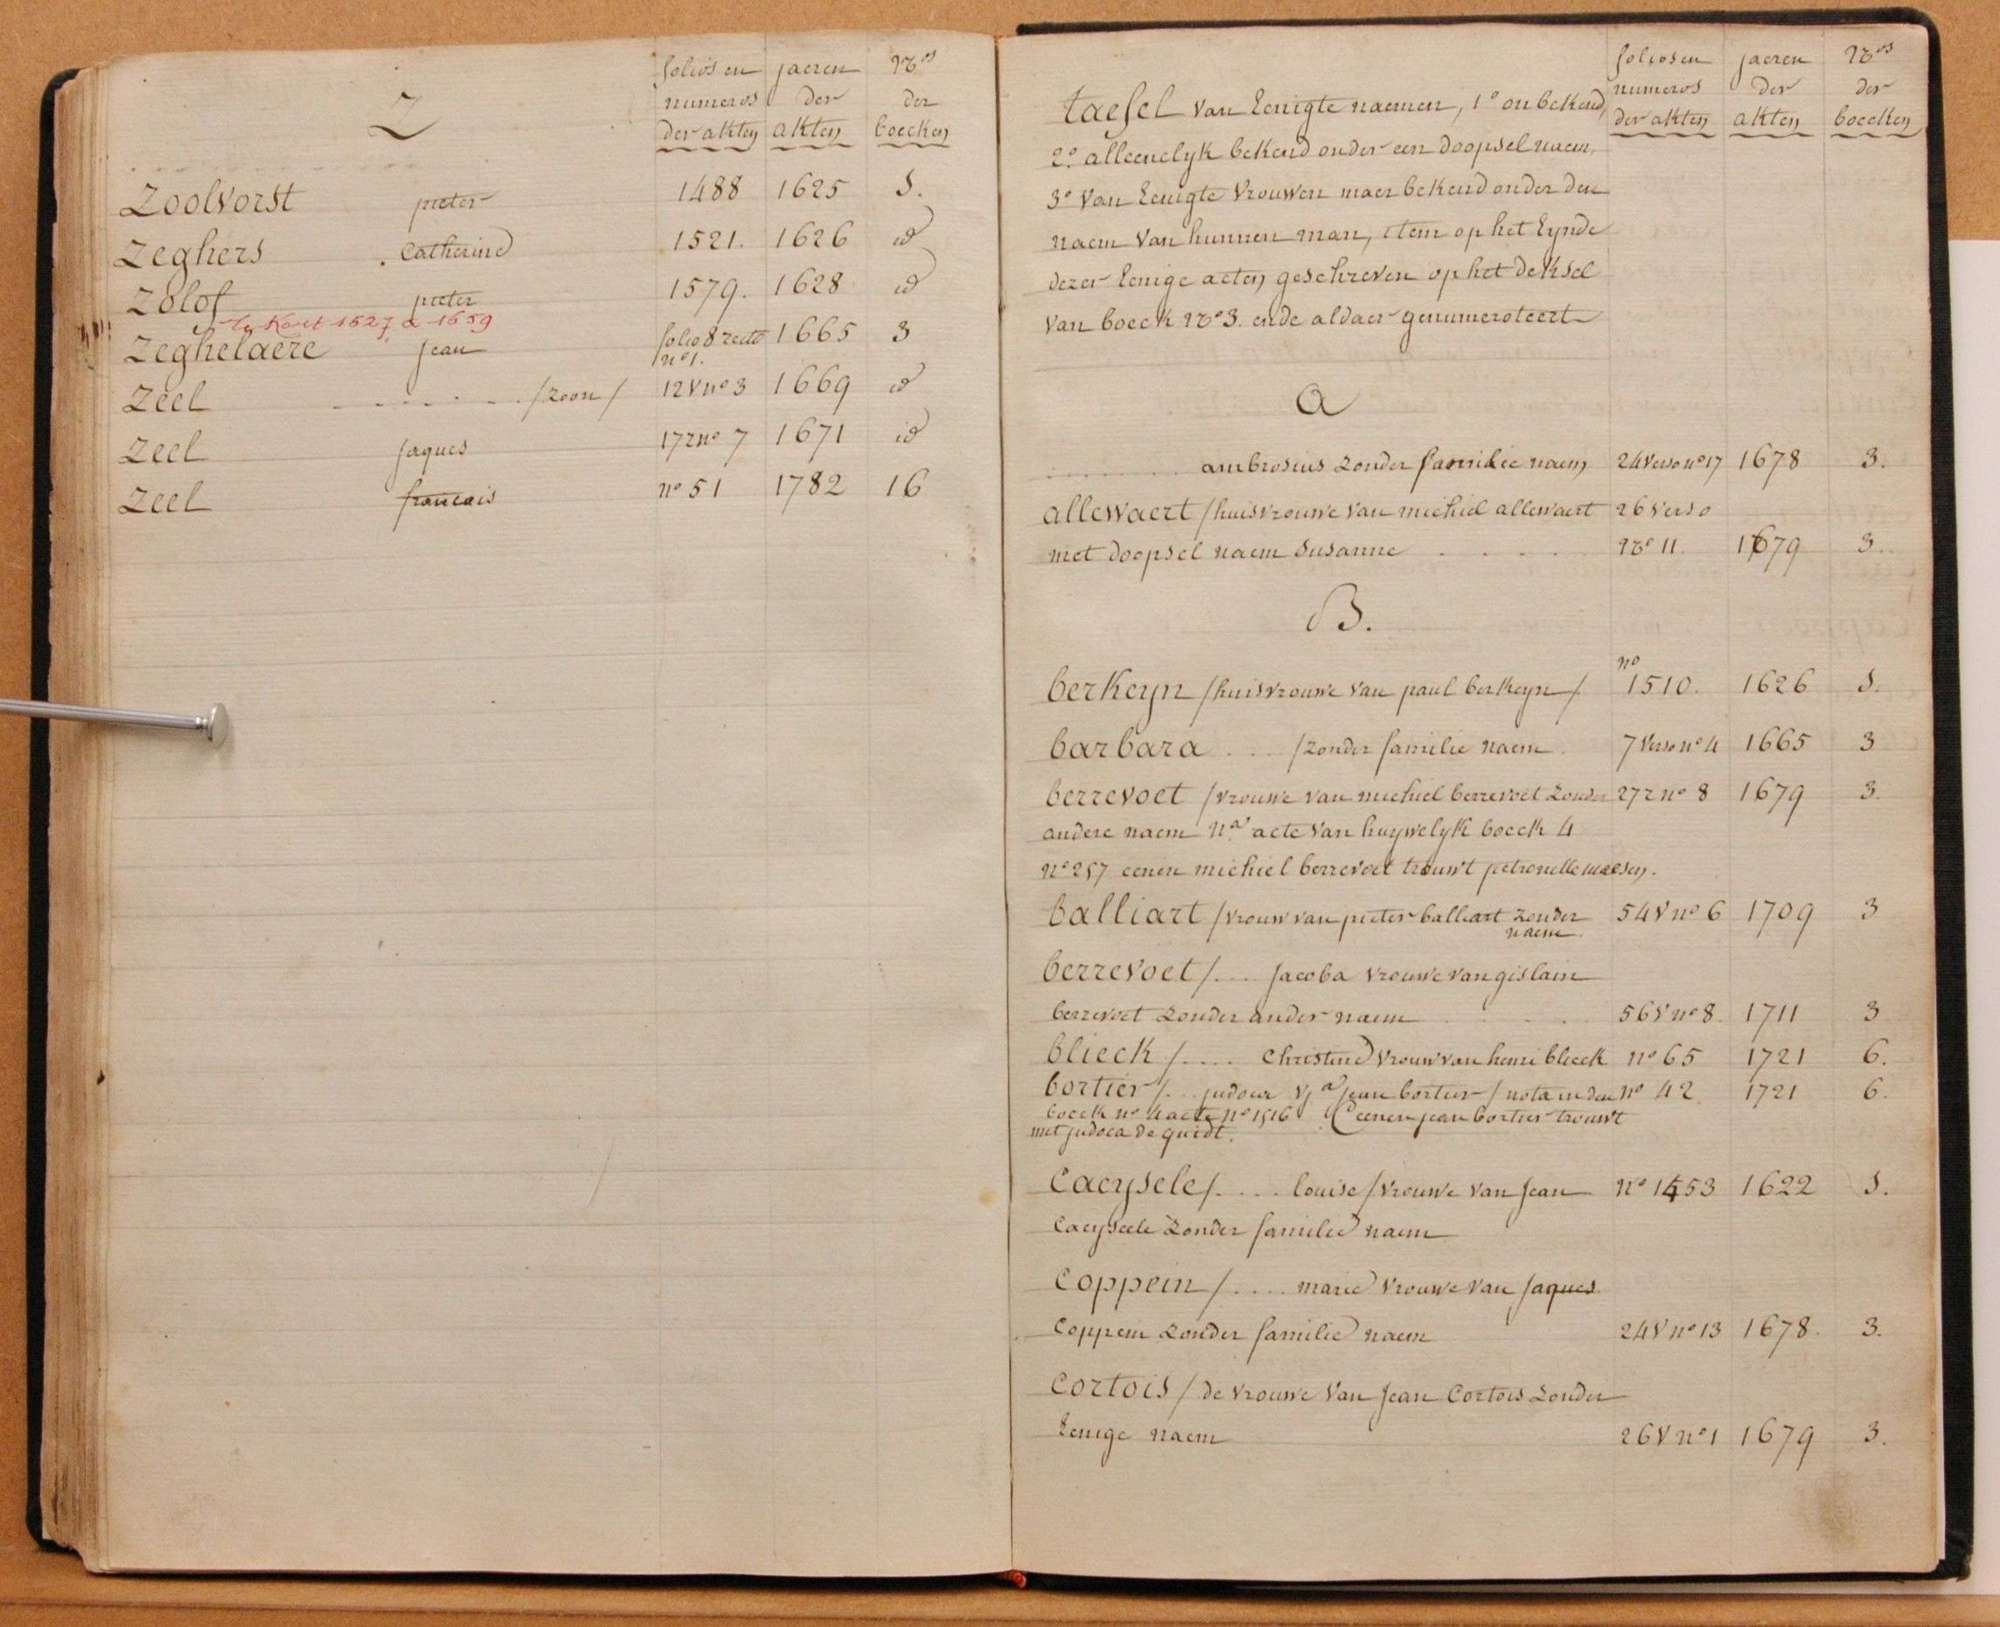 Z
folios en numeros der akten
jaeren der akten
Nos der boecken
Zoolvorst pieter 1488 1625 S.
Zeghers Catherine 1521. 1626 id
Zolof pieter 1579. 1628 id
Te Kort 1627 a 1659
Zeghelaere Jean folio 8 recto no 1. 1665 3
Zeel . . . . . . /Zoon/ 12 V no 3 1669 id
Zeel Jaques 17 r no 7 1671 id
Zeel francois no 51 1782 16
folios en numeros der akten
jaeren der akten
Nos der boecken
taefel van Eenigte naemen, 1o onbekend,
2o. alleenelyk bekend onder een doopsel naem,
3o van Eenigte vrouwen maer bekend onder den
naem van hunnen man, item op het Eynde
dezer Eenige acten geschreven op het deksel
van boeck No 3. ende aldaer genumeroteert
a
. . . . . . ambrosius zonder familie naem 24 verso no 17 1678 3.
allewaert /huisvrouwe van michiel allewaert 26 verso
met doopsel naem Susanne . . . . No 11. 1679 3.
B.
berkeyn /huisvrouwe van paul berkeyn/ no 1510. 1626 S.
barbara . . . /zonder familie naem . 7 verso no 4 1665 3
berrevoet /vrouwe van michiel berrevoet zonder 27 r no 8 1679 3.
andere naem Na acte van huywelyk boeck 4
No 257 eenen michiel berrevoet trouwt petronelle maesen.
balliart /vrouw van pieter balliart zonder 54 V no 6 1709 3
naem.
berrevoet/ . . . Jacoba vrouwe van gislain
berrevoet zonder ander naem . . . . 56 V no 8. 1711 3
blieck / . . . . Christine vrouw van henri blieck no 65 1721 6.
bortier /. . . judoca Va jean bortier / nota in den no 42 1721 6.
boeck no 4 acte no 1516 eenen jean bortier trouwt
met judoca de quidt.
Caeysele/. . . . louise /vrouwe van Jean No 1453 1622 S.
Caeyseele zonder familie naem
Coppein / . . . . marie vrouwe van Jaques
Coppein zonder familie naem 24 V no 13 1678. 3.
Cortois / de vrouwe van Jean Cortois zonder
Eenige naem 26 V no 1 1679 3.